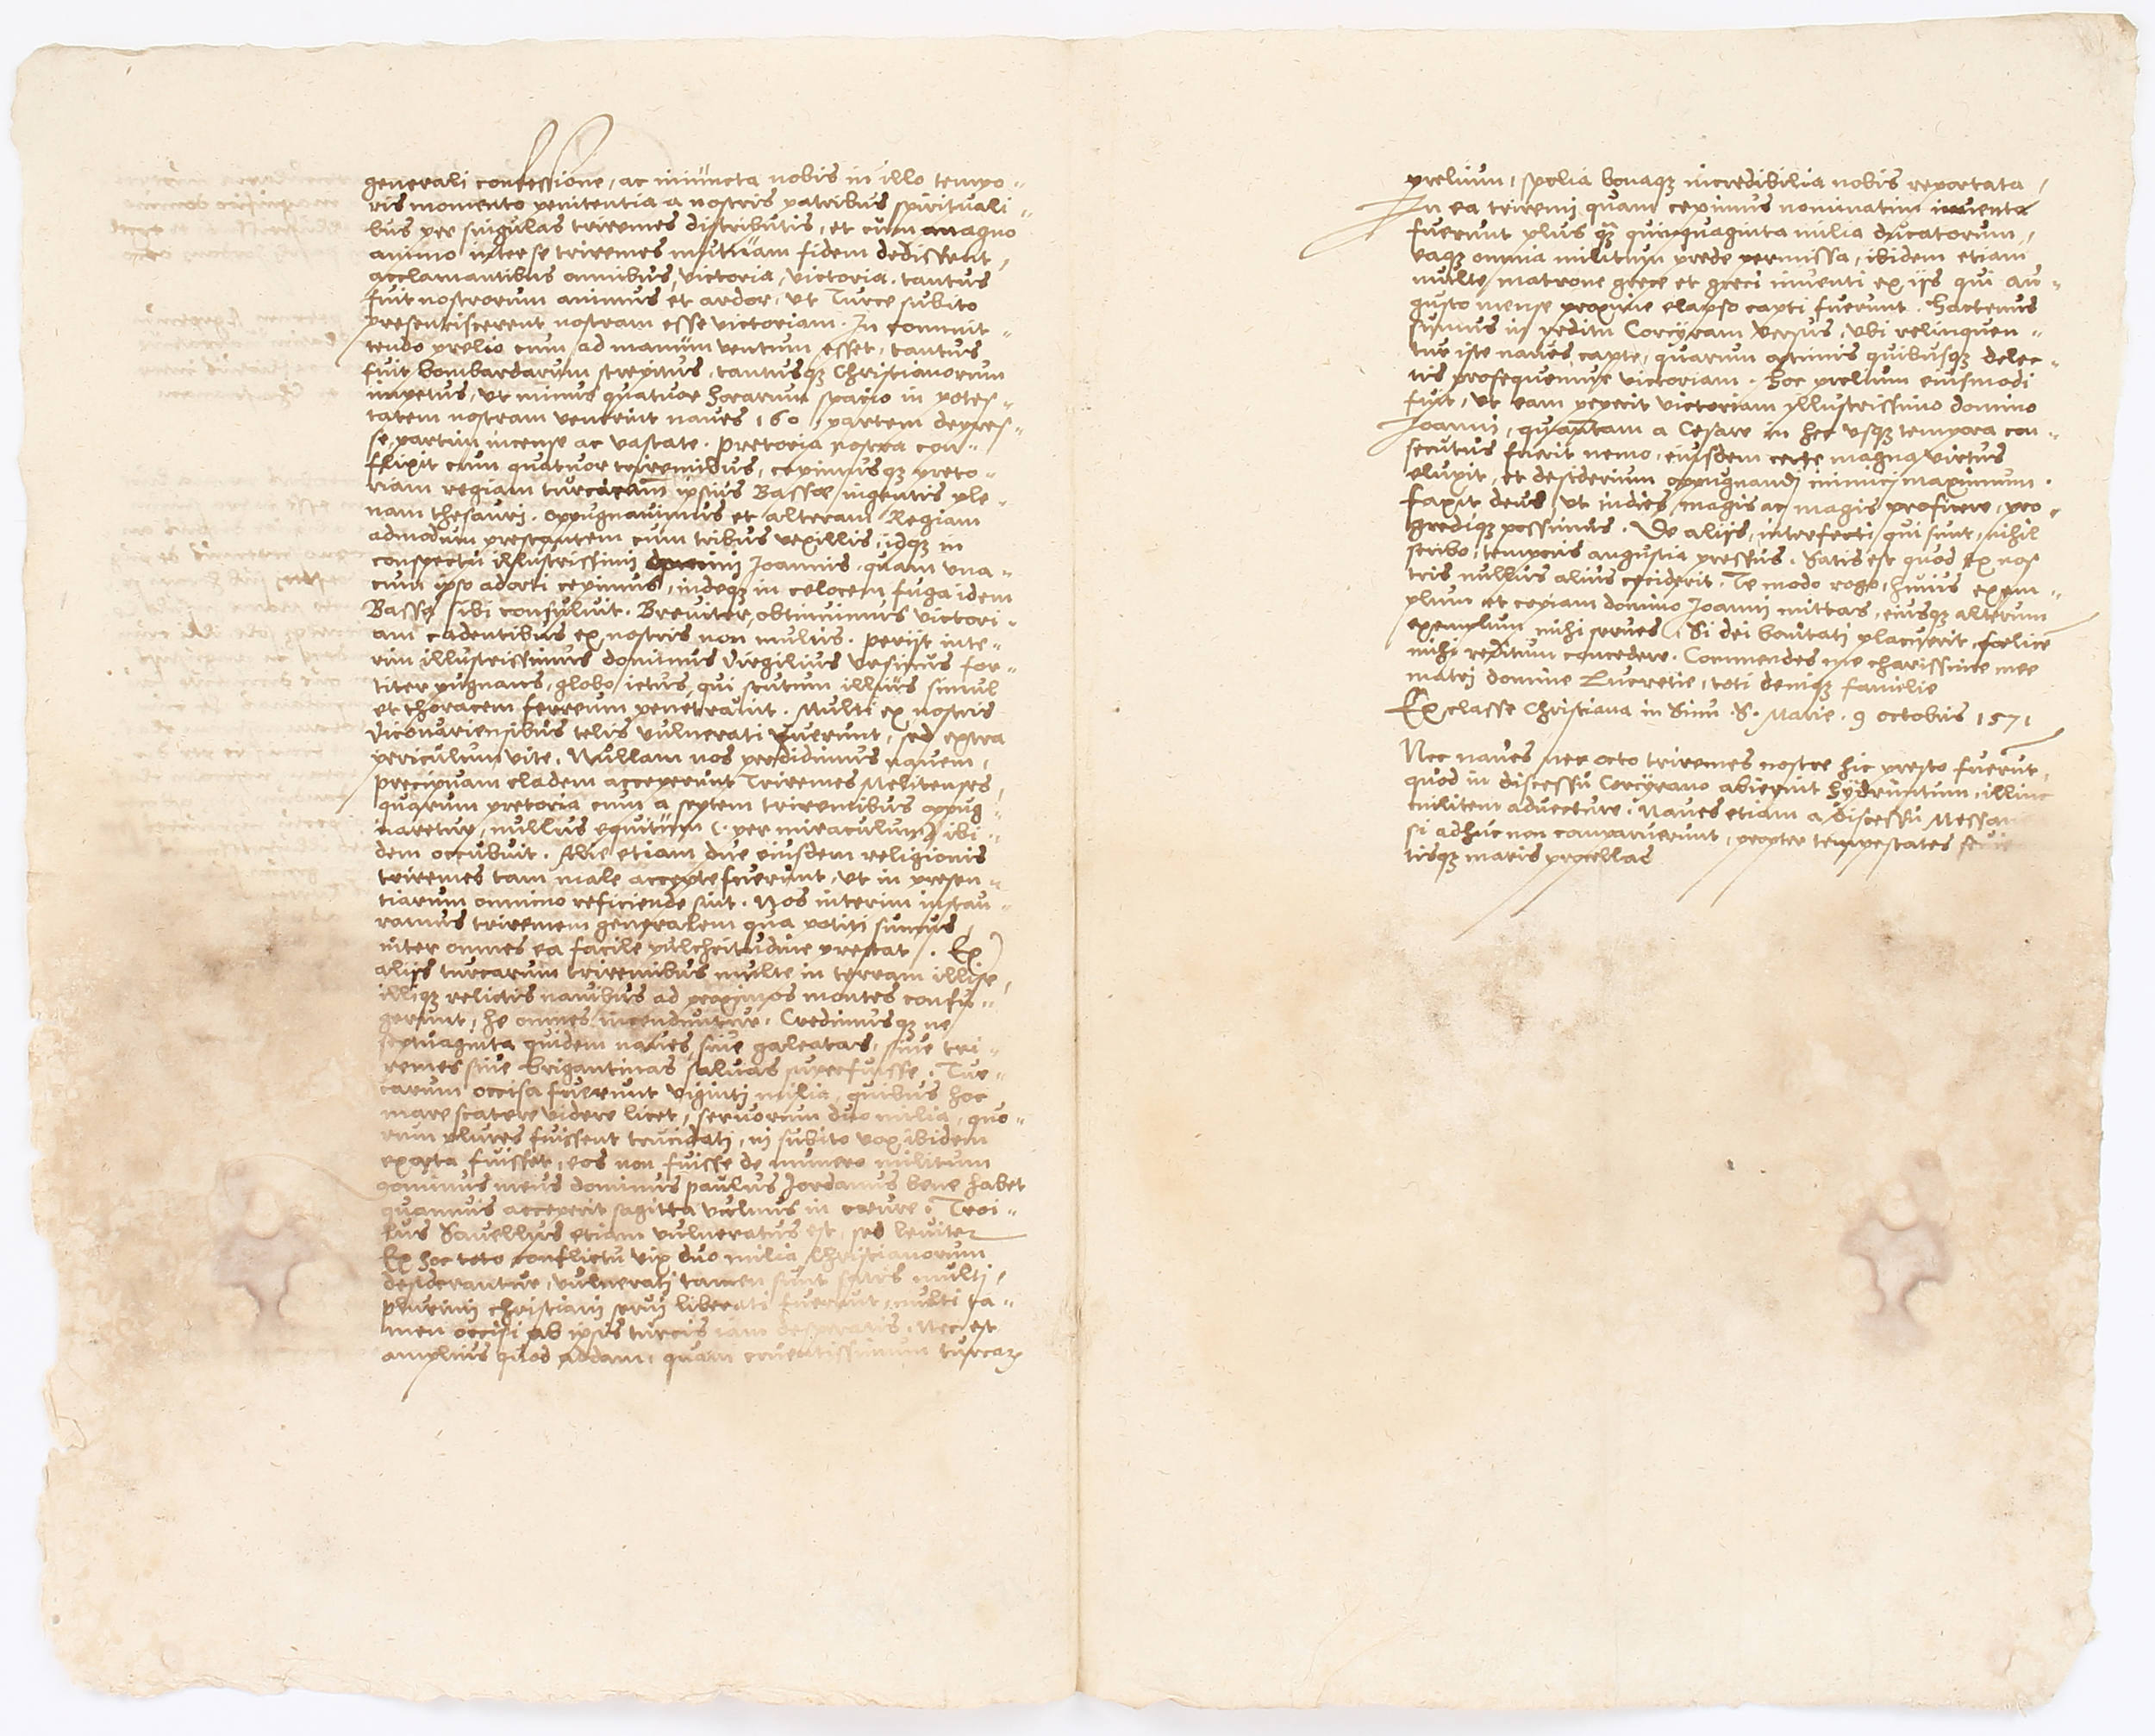 generali confessione, ac iniuncta nobis in illo tempo-
ris momento penitentia a nostris patribus spirituali-
bus per singulas triremes distributis, et cum magno
animo inter se triremes mutuam fidem dedissent,
acclamantibus omnibus, victoria, victoria. tantus
fuit nostrorum animus et ardor, ut Turce subito
presentiscerent nostram esse victoriam. In commit-
tendo prelio cum ad manum ventum esset, tantus
fuit bombardarum strepitus, tantusqȝ Christianorum
impetus, ut minus quatuor horarum spacio in potes-
tatem nostram venerint naves 160, partem depres-
se, partim incense ac vastate. Pretoria nostra con-
flixit cum quatuor triremibus, cepimusqȝ preto-
riam regiam turcarum ipsius Basse ingentis ple-
nam thesauri. oppugnavimus et alteram Regiam
admodum prestantem cum tribus vexillis, idqȝ in
conspectu illustrissimi domini Joannis, quam una
cum ipso adorti cepimus, indeqȝ in celocem fuga idem
Basse sibi consuluit. Breviter, obtinuimus victori-
am cadentibus ex nostris non multis. Periit inte-
rim illustrissimus dominus Virgilius Ursinus for-
titer pugnans, globo ictus, qui scutum illius simul
et thoracem ferreum penetravit. Multi ex nostris
Vicovariensibus telis vulnerati fuerunt, sed extra
periculum vite. Nullam nos perdidimus navem,
precipuam cladem acceperunt Triremes Melitenses,
quarum pretoria cum a septem triremibus oppug-
naretur, nullus equitum (per miraculum) ibi-
dem occubuit. Alie etiam due eiusdem religionis
triremes tam male accepte fuerunt, ut in presen-
tiarum omnino reficiende sint. Nos interim instau-
ramus triremem generalem qua potiti sumus,
inter omnes ea facile pulchritudine prestat. Ex
aliis turcarum triremibus multe in terram illise,
illiqȝ relictis navibus ad proximos montes confu-
gerunt, he omnes incenduntur. Credimusqȝ ne
septuaginta quidem naves, sive galeatas, sive tri-
remes sive brigantinas salvas superfuisse. Tur-
carum occisa fuerunt viginti milia, quibus hoc
mare scatere videre licet, servorum duo milia, quo-
rum plures fuissent trucidati, ni subito vox ibidem
exorta fuisset, eos non fuisse de numero militum
Dominus meus dominus Paulus Jordanus bene habet
quamvis acceperit sagitta vulnus in crure. Troi-
lus Savellus etiam vulneratus est, sed leviter
Ex hoc toto conflictu vix duo milia Christianorum
desiderantur, vulnerati tamen sunt satis multi,
plurimi christiani servi liberati fuerunt, multi ta-
men occisi ab ipsis turcis iam desperatis. Nec est
amplius quod addam, quam cruentissimum turcarȝ
prelium, spolia bonaqȝ incredibilia nobis reportata,
In ea triremi quam cepimus nominatim inventa
fuerunt plus qȝ quinquaginta milia ducatorum,
eaqȝ omnia militum prede permissa, ibidem etiam
multe matrone grece et greci inventi ex iis qui au-
gusto mense proxime elapso capti fuerunt. Hactenus
sumus in reditu Corcyram versus, ubi relinquen-
tur iste naves capte, quarum optimis quibusqȝ delec-
tis prosequemur victoriam. Hoc prelium eiusmodi
fuit, ut eam pepererit victoriam illustrissimo domino
Joanni, quantam a Cesare in hec usqȝ tempora con-
secutus fuerit nemo, eiusdem certe magna virtus
eluxit, et desiderium oppugnandi inimici maximum.
faxit deus, ut indies magis ac magis proficere, pro-
grediqȝ possimus. De aliis, interfecti qui sunt, nihil
scribo, temporis angustia pressus. Satis est quod ex nos
tris nullus alius ceciderit. Te modo rogo, huius exem-
plum et copiam domino Joanni mittas, eiusqȝ alterum
exemplum mihi serves. Si dei bonitati placuerit, foelice
mihi reditum concedere. Commendes me charissime mee
matri domine Lucretie, toti deniqȝ familie
Ex classe Christiana in Sinu .S. Marie. 9 octobris 1571
Nec naves nec octo triremes nostre hic presto fuerut,
quod in discessu Corcyrano abierint Hydruntum, illinc
militem advecture. Naves etiam a discessu Messan
si adhuc non comparuerunt, propter tempestates
tisqȝ maris procellas